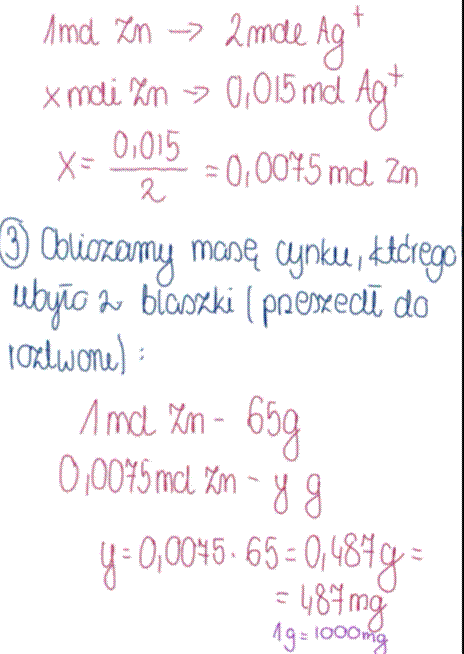 1 mol Zn → 2 mole Ag⁺
x moli Zn → 0,015 mol Ag⁺
x = 0,015/2 = 0,0075 mol Zn
③ Obliczamy masę cynku, którego
ubyło z blaszki (przeszedł do
roztworu):
1 mol Zn - 65g
0,0075 mol Zn - y g
y = 0,0075 · 65 = 0,487g =
= 487 mg
1g = 1000mg